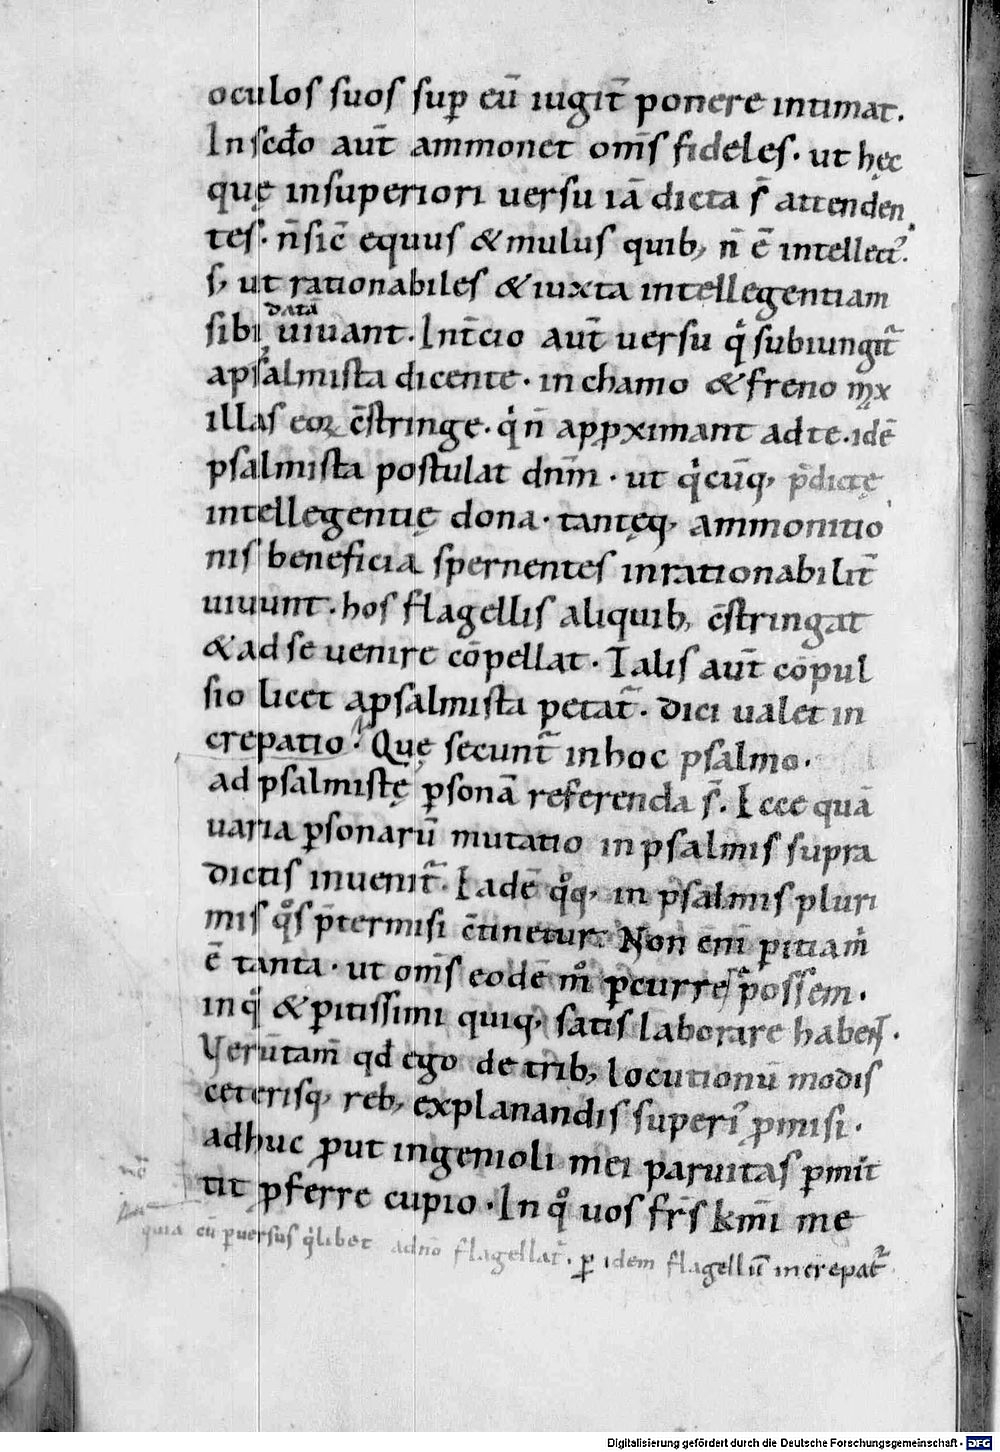 oculos suos sup̱ eū iugit̄ ponere intimat.
In sc̄do aut̄ ammonet om̄s fideles. ut hęc
quę insuperiori uersu iā dicta s̄ attenden
tes. n̄ sic̄ equus & mulus quib; n̄ ē intellect᷒.
s; ut rationabiles & iuxta intellegentiam
datā
sibi uiuant. Int̄cio aut̄ uersu qͥ subiungit᷒
apsalmista dicente. in chamo & freno max
illas eoꝝ c̄stringe. qͥ n̄ apꝓximant ad te. idē
psalmista postulat dnm̄. ut qͥcūq; p̄dictę
intellegentię dona. tantęq; ammonitio
nis beneficia spernentes inrationabilit̄
uiuunt. hos flagellis aliquib; c̄stringat
& ad se uenire cōpellat. Talis aut̄ cōpul
sio licet apsalmista petat᷒. dici ualet in
crepatio. Quę secunt᷒ in hoc psalmo.
ad psalmistę ꝑsonā referenda s̄. Ecce quā
uaria ꝑsonarū mutatio in psalmis supra
dictis inuenit᷒. Eadē qͦq; in psalmis pluri
mis qͦs p̄termisi c̄tinetur. Non eni̅ ꝑitia m̍
ē tanta. ut om̄s eodē mͦ ꝑcurrere possem.
in qͥ & ꝑitissimi quiq; satis laborare habent.
Uerūtam̄ qd̄ ego de trib; locutionū modis
ceterisq; reb; explanandis superi᷒ ꝓmisi.
adhuc ꝓut ingenioli mei paruitas ꝑmit
tit ꝓferre cupio. In qͦ uos fr̄s km̄i me
quia cū ꝑuersus qͥlibet adn̄o flagellat᷒. ꝑ idem flagellū increpat᷒